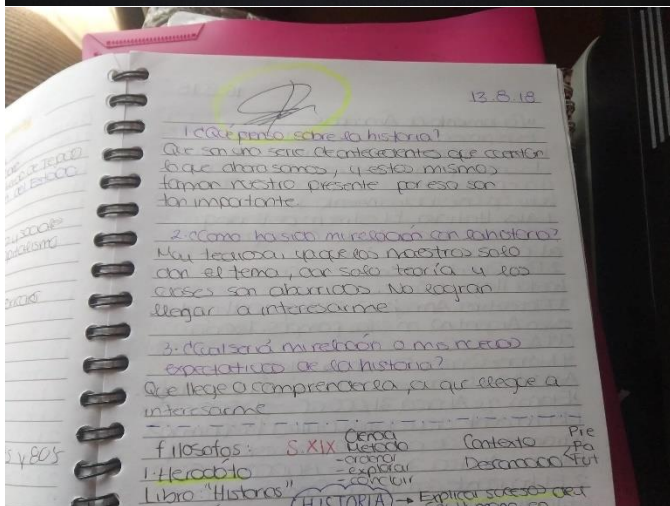 13.8.18
1. ¿Qué pienso sobre la historia?
Que son una serie de antecedentes que cuentan
lo que ahora somos, y estos mismos
forman nuestro presente por eso son
tan importante.
2. ¿Como ha sido mi relación con la historia?
Muy tediosa, ya que los maestros solo
dan el tema, dan solo teoría y las
clases son aburridas. No logran
llegar a interesarme
3. ¿Cual será mi relación o mis nuevas
expectativas de la historia?
Que llege a comprenderla, a que llegue a
interesarme
filosofos: S.XIX Ciencia Método Contexto Pre
-ordenar Pa
1. Herodoto -explorar Fut
Libro "Historias" -concluir
HISTORIA → Explicar sucesos
DEL ESTADO